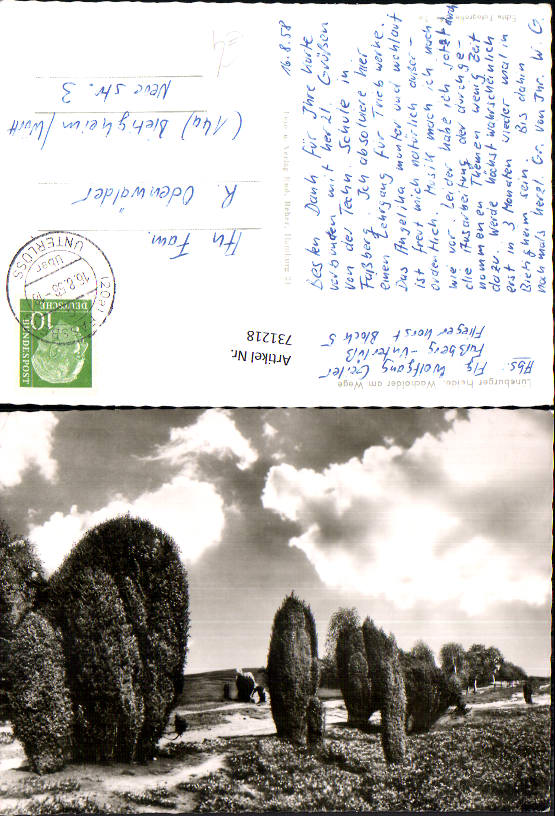 Lüneburger Heide. Wacholder am Wege
Abs: Flg Wolfgang Geiler
Faßberg-Unterlüß
Fliegerhorst Block 5
16.8.58
Besten Dank für Ihre Karte
verbunden mit herzl. Grüßen
von der Techn. Schule in
Faßberg. Ich absolviere hier
einen Lehrgang für Triebwerke.
Das Angelika munter und wohlauf
ist freut mich natürlich außer-
ordentlich. Musik mach ich nach
wie vor. Leider habe ich jetzt durch
die Ausarbeitung der durchge-
nommenen Themen wenig Zeit
dazu. Werde höchst wahrscheinlich
erst in 3 Monaten wieder mal in
Bietigheim sein. Bis dahin
nochmals herzl. Gr. von Ihr. W. G.
Echte Fotografie
Hamburg 21
An Fam.
R. Odenwälder
(14a) Bietigheim/Württ
Neue Str. 3
Artikel Nr.
731218
(20a)
UNTERLÜSS
über
16.8.58
10
DEUTSCHE
BUNDESPOST